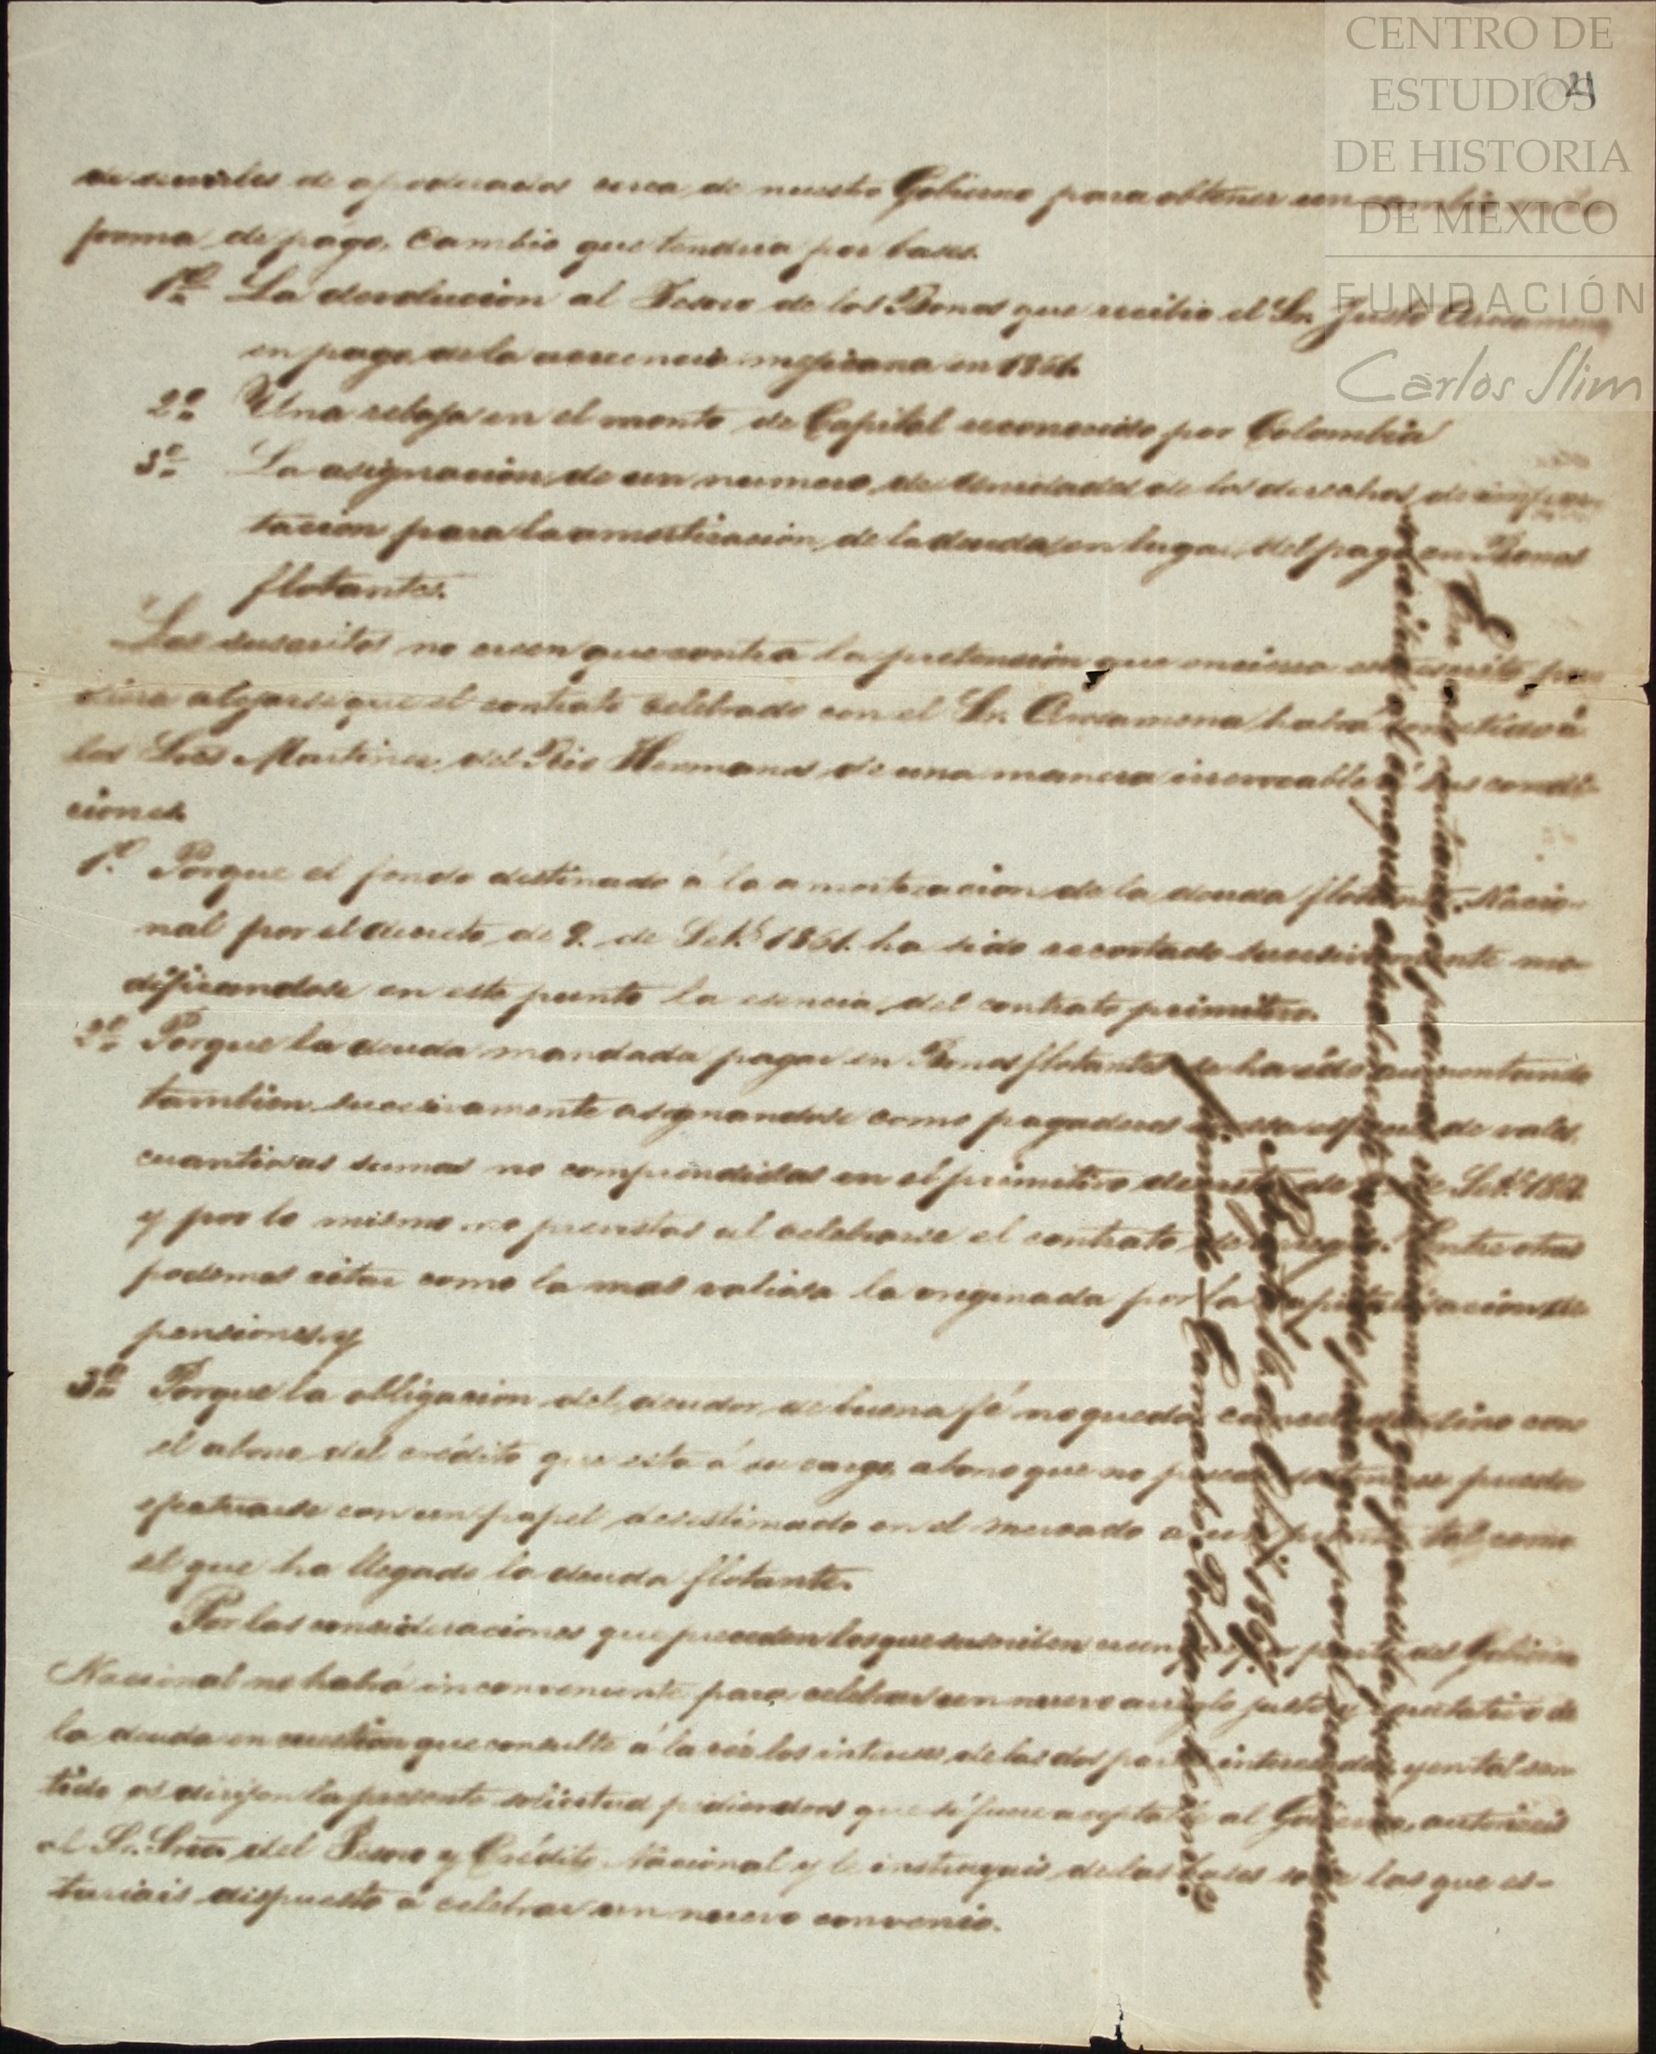 CENTRO DE
ESTUDIOS
DE HISTORIA
DE MÉXICO
FUNDACIÓN
Carlos Slim
21
de apoderados cerca de nuestro Gobierno para obtener un cambio
forma de pago. Cambio que tendria por bases.
1ª La devolucion al Tesoro de los Bonos que recibio el Sr. Justo Arosemena
en pago de la acreencia mejicana en 1861.
2ª Una rebaja en el monto de Capital reconocido por Colombia
3ª La asignacion de un numero de unidades de los derechos de impor-
tacion para la amortizacion de la deuda en lugar del pago en Bonos
flotantes.
Los suscritos no creen que contra la pretension que encierra este escrito pu
diera alegarse que el contrato celebrado con el Sr. Arosamena habia sometido á
los Sres Martinez del Rio Hermanos de una manera irrevocable á sus condi-
ciones.
1º. Porque el fondo destinado á la amortizacion de la deuda flotante Nacio-
nal por el decreto de 9. de Setb 1861. ha sido recortado sucesivamente mo-
dificandose en este punto la esencia del contrato primitivo.
2º Porque la deuda mandada pagar en Bonos flotantes se ha ido aumentando
tambien sucesivamente asignandose como pagaderas en esa especie de vales,
cuantiosas sumas no comprendidas en el primitivo decreto de 9 de Setb 1861.
y por lo mismo no previstas al celebrarse el contrato de arreglo. Entre otras
podemos citar como la mas valiosa la originada por la capitalizacion de
pensiones, y
3º Porque la obligacion del deudor de buena fé no queda cancelada sino con
el abono del crédito que esta á su cargo, abono que no parece sostenerse pueda
efectuarse con un papel desestimado en el mercado a un punto tal, como
el que ha llegado la deuda flotante.
Por las consideraciones que preceden los que suscriben creen que por parte del Gobierno
Nacional no habrá inconveniente para celebrar un nuevo arreglo justo y equitativo de
la deuda en cuestion que consulte á la vez los intereses de las dos partes interesadas, y en tal sen
tido os dirijen la presente solicitud pidiendoos que si fuere aceptable al Gobierno, autoriceis
al Sr. Srio. del Tesoro y Crédito Nacional y le instruyais de las bases sobre las que es-
tariais dispuesto á celebrar un nuevo convenio.
En este entendido, os pedimos espresamente que
al arreglo actualmente vijente para que por el
Bogotá 16 de Abril 1867.
Firmado = Camacho Roldan